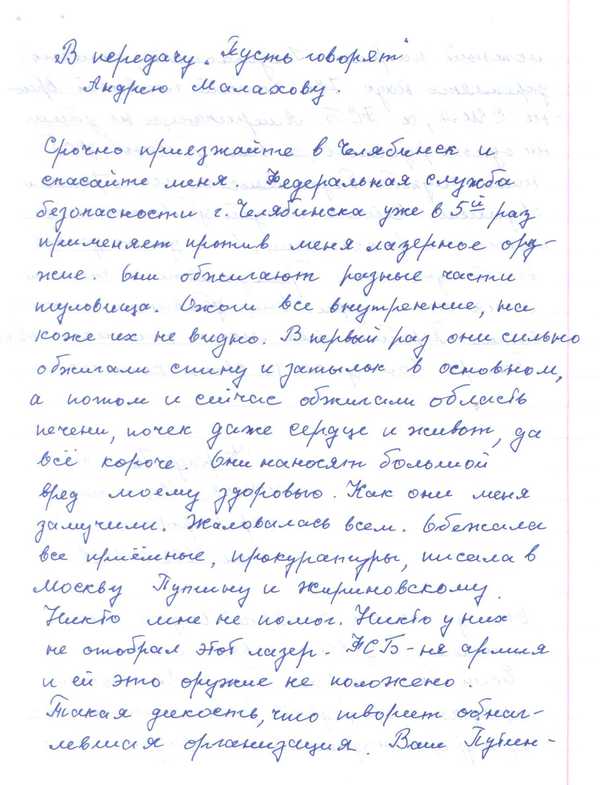 В передачу „Пусть говорят"
Андрею Малахову.
Срочно приезжайте в Челябинск и
спасайте меня. Федеральная служба
безопасности г. Челябинска уже в 5й раз
применяет против меня лазерное ору-
жие. Они обжигают разные части
туловища. Ожоги все внутренние, на
коже их не видно. В первый раз они сильно
обжигали спину и затылок в основном,
а потом и сейчас обжигали область
печени, почек даже сердце и живот, да
всё короче. Они наносят большой
вред моему здоровью. Как они меня
замучили. Жаловалась всем. Обежала
все приёмные, прокуратуры, писала в
Москву Путину и Жириновскому.
Никто мне не помог. Никто у них
не отобрал этот лазер. ФСБ - не армия
и ей это оружие не положено.
Такая дикость, что творит обнаг-
левшая организация. Ваш Путин-